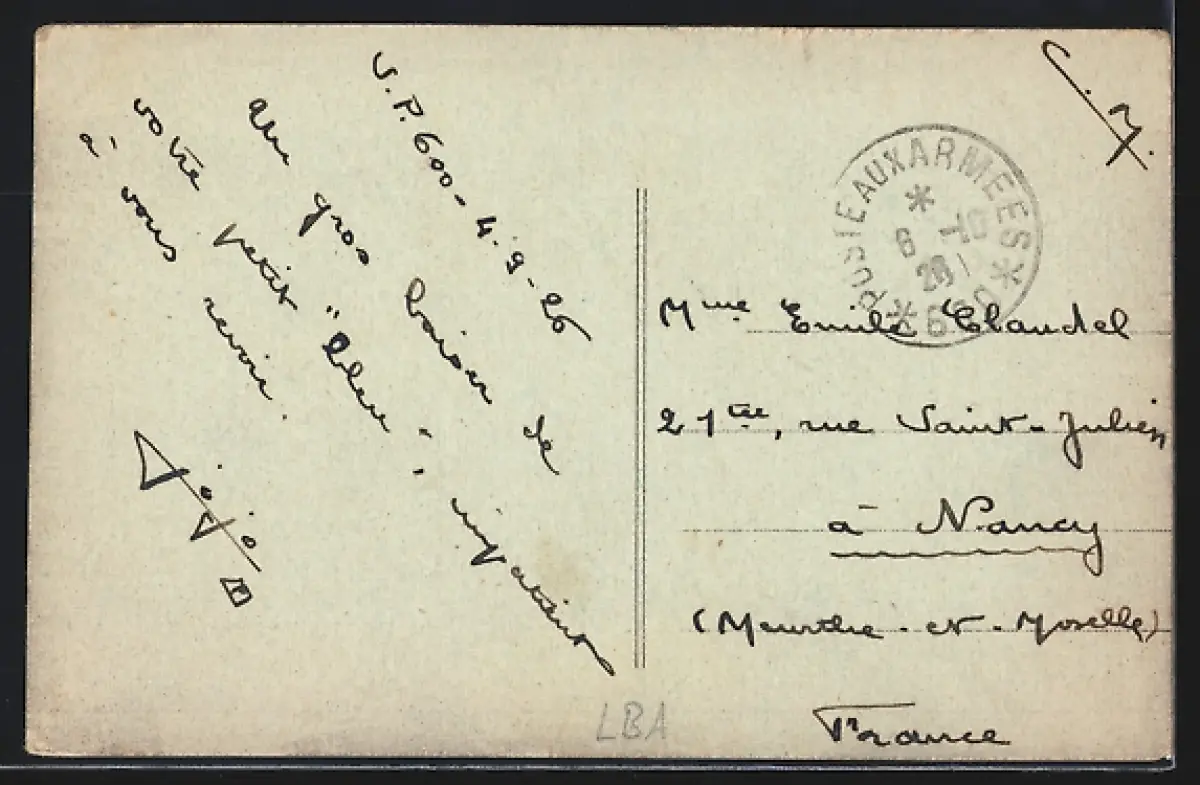 S.P. 600 - 4-9-26
Un gros baiser de
votre petit "bleu", impatient
à vous revoir.
Jojo
C.M.
POSTE AUX ARMEES
* 600 *
6 -10
26
Mme Emile Claudel
21ter, rue Saint-Julien
à Nancy
(Meurthe-et-Moselle)
France
LBA